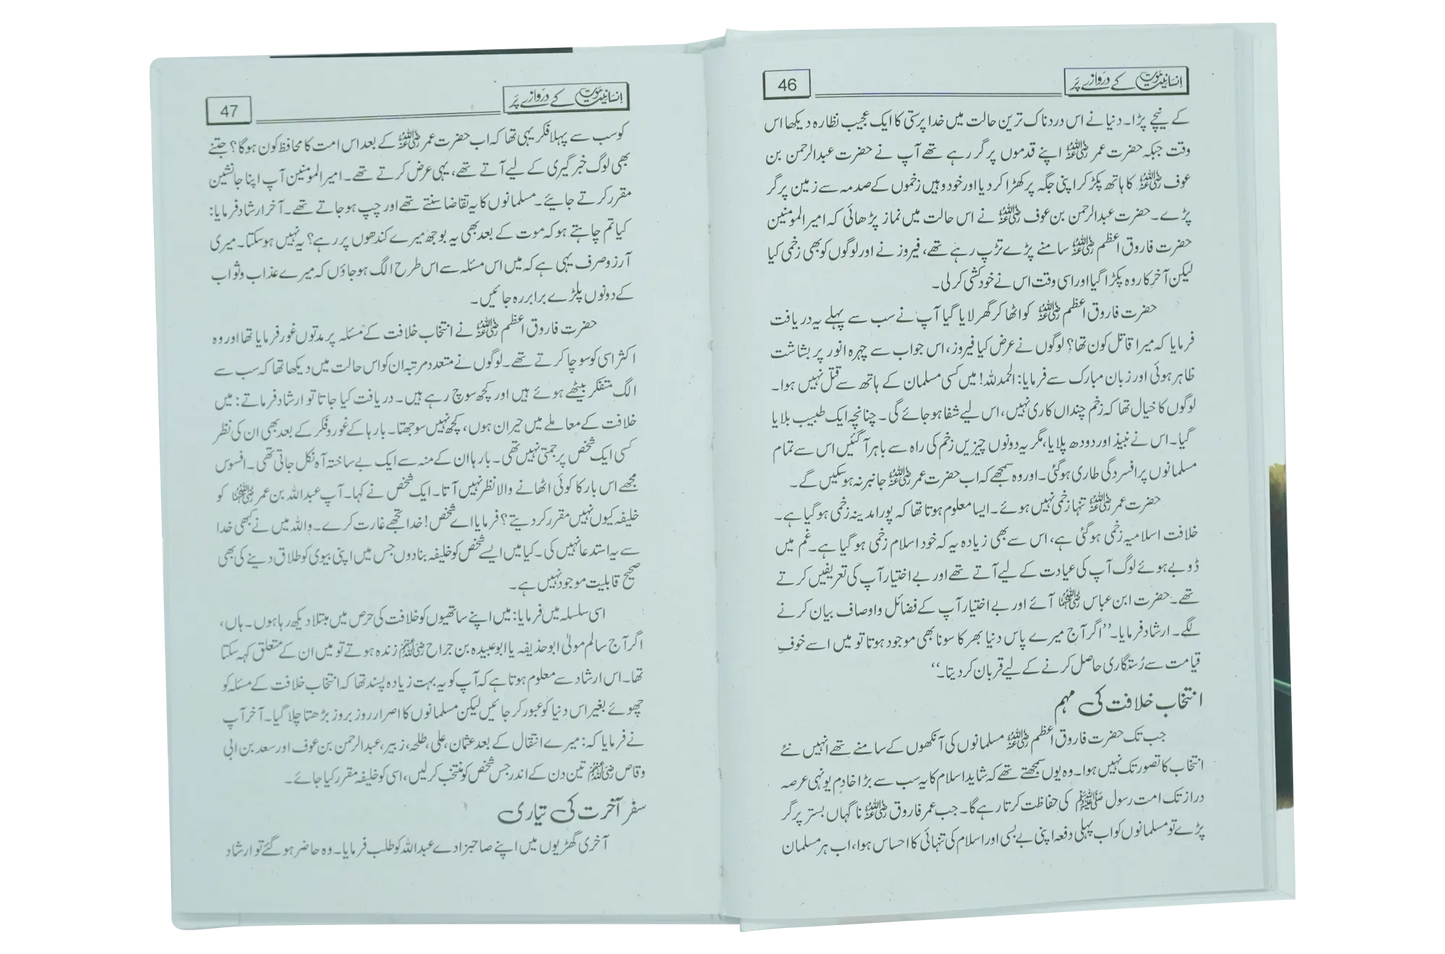 انسانیت موت کے دروازے پر
46
کے نیچے پڑا۔ دنیا نے اس دردناک ترین حالت میں خدا پرستی کا ایک عجیب نظارہ دیکھا اس
وقت جبکہ حضرت عمر رضی اللہ عنہ اپنے قدموں پر گر رہے تھے آپ نے حضرت عبدالرحمن بن
عوف رضی اللہ عنہ کا ہاتھ پکڑ کر اپنی جگہ پر کھڑا کر دیا اور خود وہیں زخموں کے صدمہ سے زمین پر گر
پڑے۔ حضرت عبدالرحمن بن عوف رضی اللہ عنہ نے اس حالت میں نماز پڑھائی کہ امیر المومنین
حضرت فاروق اعظم رضی اللہ عنہ سامنے پڑے تڑپ رہے تھے، فیروز نے اور لوگوں کو بھی زخمی کیا
لیکن آخر کار وہ پکڑا گیا اور اسی وقت اس نے خودکشی کر لی۔
حضرت فاروق اعظم رضی اللہ عنہ کو اٹھا کر گھر لایا گیا آپ نے سب سے پہلے یہ دریافت
فرمایا کہ میرا قاتل کون تھا؟ لوگوں نے عرض کیا فیروز، اس جواب سے چہرہ انور پر بشاشت
ظاہر ہوئی اور زبان مبارک سے فرمایا: الحمد للہ! میں کسی مسلمان کے ہاتھ سے قتل نہیں ہوا۔
لوگوں کا خیال تھا کہ زخم چنداں کاری نہیں، اس لیے شفا ہو جائے گی۔ چنانچہ ایک طبیب بلایا
گیا۔ اس نے نبیذ اور دودھ پلایا، مگر یہ دونوں چیزیں زخم کی راہ سے باہر آ گئیں اس سے تمام
مسلمانوں پر افسردگی طاری ہو گئی۔ اور وہ سمجھے کہ اب حضرت عمر رضی اللہ عنہ جانبر نہ ہو سکیں گے۔
حضرت عمر رضی اللہ عنہ تنہا زخمی نہیں ہوئے۔ ایسا معلوم ہوتا تھا کہ پورا مدینہ زخمی ہو گیا ہے۔
خلافت اسلامیہ زخمی ہو گئی ہے، اس سے بھی زیادہ یہ کہ خود اسلام زخمی ہو گیا ہے۔ غم میں
ڈوبے ہوئے لوگ آپ کی عیادت کے لیے آتے تھے اور بے اختیار آپ کی تعریفیں کرتے
تھے۔ حضرت ابن عباس رضی اللہ عنہ آئے اور بے اختیار آپ کے فضائل و اوصاف بیان کرنے
لگے۔ ارشاد فرمایا۔ ”اگر آج میرے پاس دنیا بھر کا سونا بھی موجود ہوتا تو میں اسے خوفِ
قیامت سے رستگاری حاصل کرنے کے لیے قربان کر دیتا۔“
انتخاب خلافت کی مہم
جب تک حضرت فاروق اعظم رضی اللہ عنہ مسلمانوں کی آنکھوں کے سامنے تھے انہیں نئے
انتخاب کا تصور تک نہیں ہوا۔ وہ یوں سمجھتے تھے کہ شاید اسلام کا یہ سب سے بڑا خادم یونہی عرصہ
دراز تک امت رسول ﷺ کی حفاظت کرتا رہے گا۔ جب عمر فاروق رضی اللہ عنہ ناگہاں بستر پر گر
پڑے تو مسلمانوں کو اب پہلی دفعہ اپنی بے بسی اور اسلام کی تنہائی کا احساس ہوا، اب ہر مسلمان
انسانیت موت کے دروازے پر
47
کو سب سے پہلا فکر یہی تھا کہ اب حضرت عمر رضی اللہ عنہ کے بعد اس امت کا محافظ کون ہوگا؟ جتنے
بھی لوگ خبر گیری کے لیے آتے تھے، یہی عرض کرتے تھے۔ امیر المومنین آپ اپنا جانشین
مقرر کرتے جائیے۔ مسلمانوں کا یہ تقاضا سنتے تھے اور چپ ہو جاتے تھے۔ آخر ارشاد فرمایا:
کیا تم چاہتے ہو کہ موت کے بعد بھی یہ بوجھ میرے کندھوں پر رہے؟ یہ نہیں ہو سکتا۔ میری
آرزو صرف یہی ہے کہ میں اس مسئلہ سے اس طرح الگ ہو جاؤں کہ میرے عذاب و ثواب
کے دونوں پلڑے برابر رہ جائیں۔
حضرت فاروق اعظم رضی اللہ عنہ نے انتخاب خلافت کے مسئلہ پر مدتوں غور فرمایا تھا اور وہ
اکثر اسی کو سوچا کرتے تھے۔ لوگوں نے متعدد مرتبہ ان کو اس حالت میں دیکھا تھا کہ سب سے
الگ متفکر بیٹھے ہوئے ہیں اور کچھ سوچ رہے ہیں۔ دریافت کیا جاتا تو ارشاد فرماتے: میں
خلافت کے معاملے میں حیران ہوں، کچھ نہیں سوجھتا۔ بارہا کے غور و فکر کے بعد بھی ان کی نظر
کسی ایک شخص پر جمتی نہیں تھی۔ بارہا ان کے منہ سے ایک بے ساختہ آہ نکل جاتی تھی۔ افسوس
مجھے اس بار کا کوئی اٹھانے والا نظر نہیں آتا۔ ایک شخص نے کہا۔ آپ عبداللہ بن عمر رضی اللہ عنہ کو
خلیفہ کیوں نہیں مقرر کر دیتے؟ فرمایا اے شخص! خدا تجھے غارت کرے۔ واللہ میں نے کبھی خدا
سے یہ استدعا نہیں کی۔ کیا میں ایسے شخص کو خلیفہ بنا دوں جس میں اپنی بیوی کو طلاق دینے کی بھی
صحیح قابلیت موجود نہیں ہے۔
اسی سلسلہ میں فرمایا: میں اپنے ساتھیوں کو خلافت کی حرص میں مبتلا دیکھ رہا ہوں۔ ہاں،
اگر آج سالم مولیٰ ابو حذیفہ یا ابو عبیدہ بن جراح رضی اللہ عنہم زندہ ہوتے تو میں ان کے متعلق کہہ سکتا
تھا۔ اس ارشاد سے معلوم ہوتا ہے کہ آپ کو یہ بہت زیادہ پسند تھا کہ انتخاب خلافت کے مسئلہ کو
چھوئے بغیر اس دنیا کو عبور کر جائیں لیکن مسلمانوں کا اصرار روز بروز بڑھتا چلا گیا۔ آخر آپ
نے فرمایا کہ: میرے انتقال کے بعد عثمان، علی، طلحہ، زبیر، عبدالرحمن بن عوف اور سعد بن ابی
وقاص رضی اللہ عنہم تین دن کے اندر جس شخص کو منتخب کر لیں، اسی کو خلیفہ مقرر کیا جائے۔
سفر آخرت کی تیاری
آخری گھڑیوں میں اپنے صاحبزادے عبداللہ کو طلب فرمایا۔ وہ حاضر ہو گئے تو ارشاد